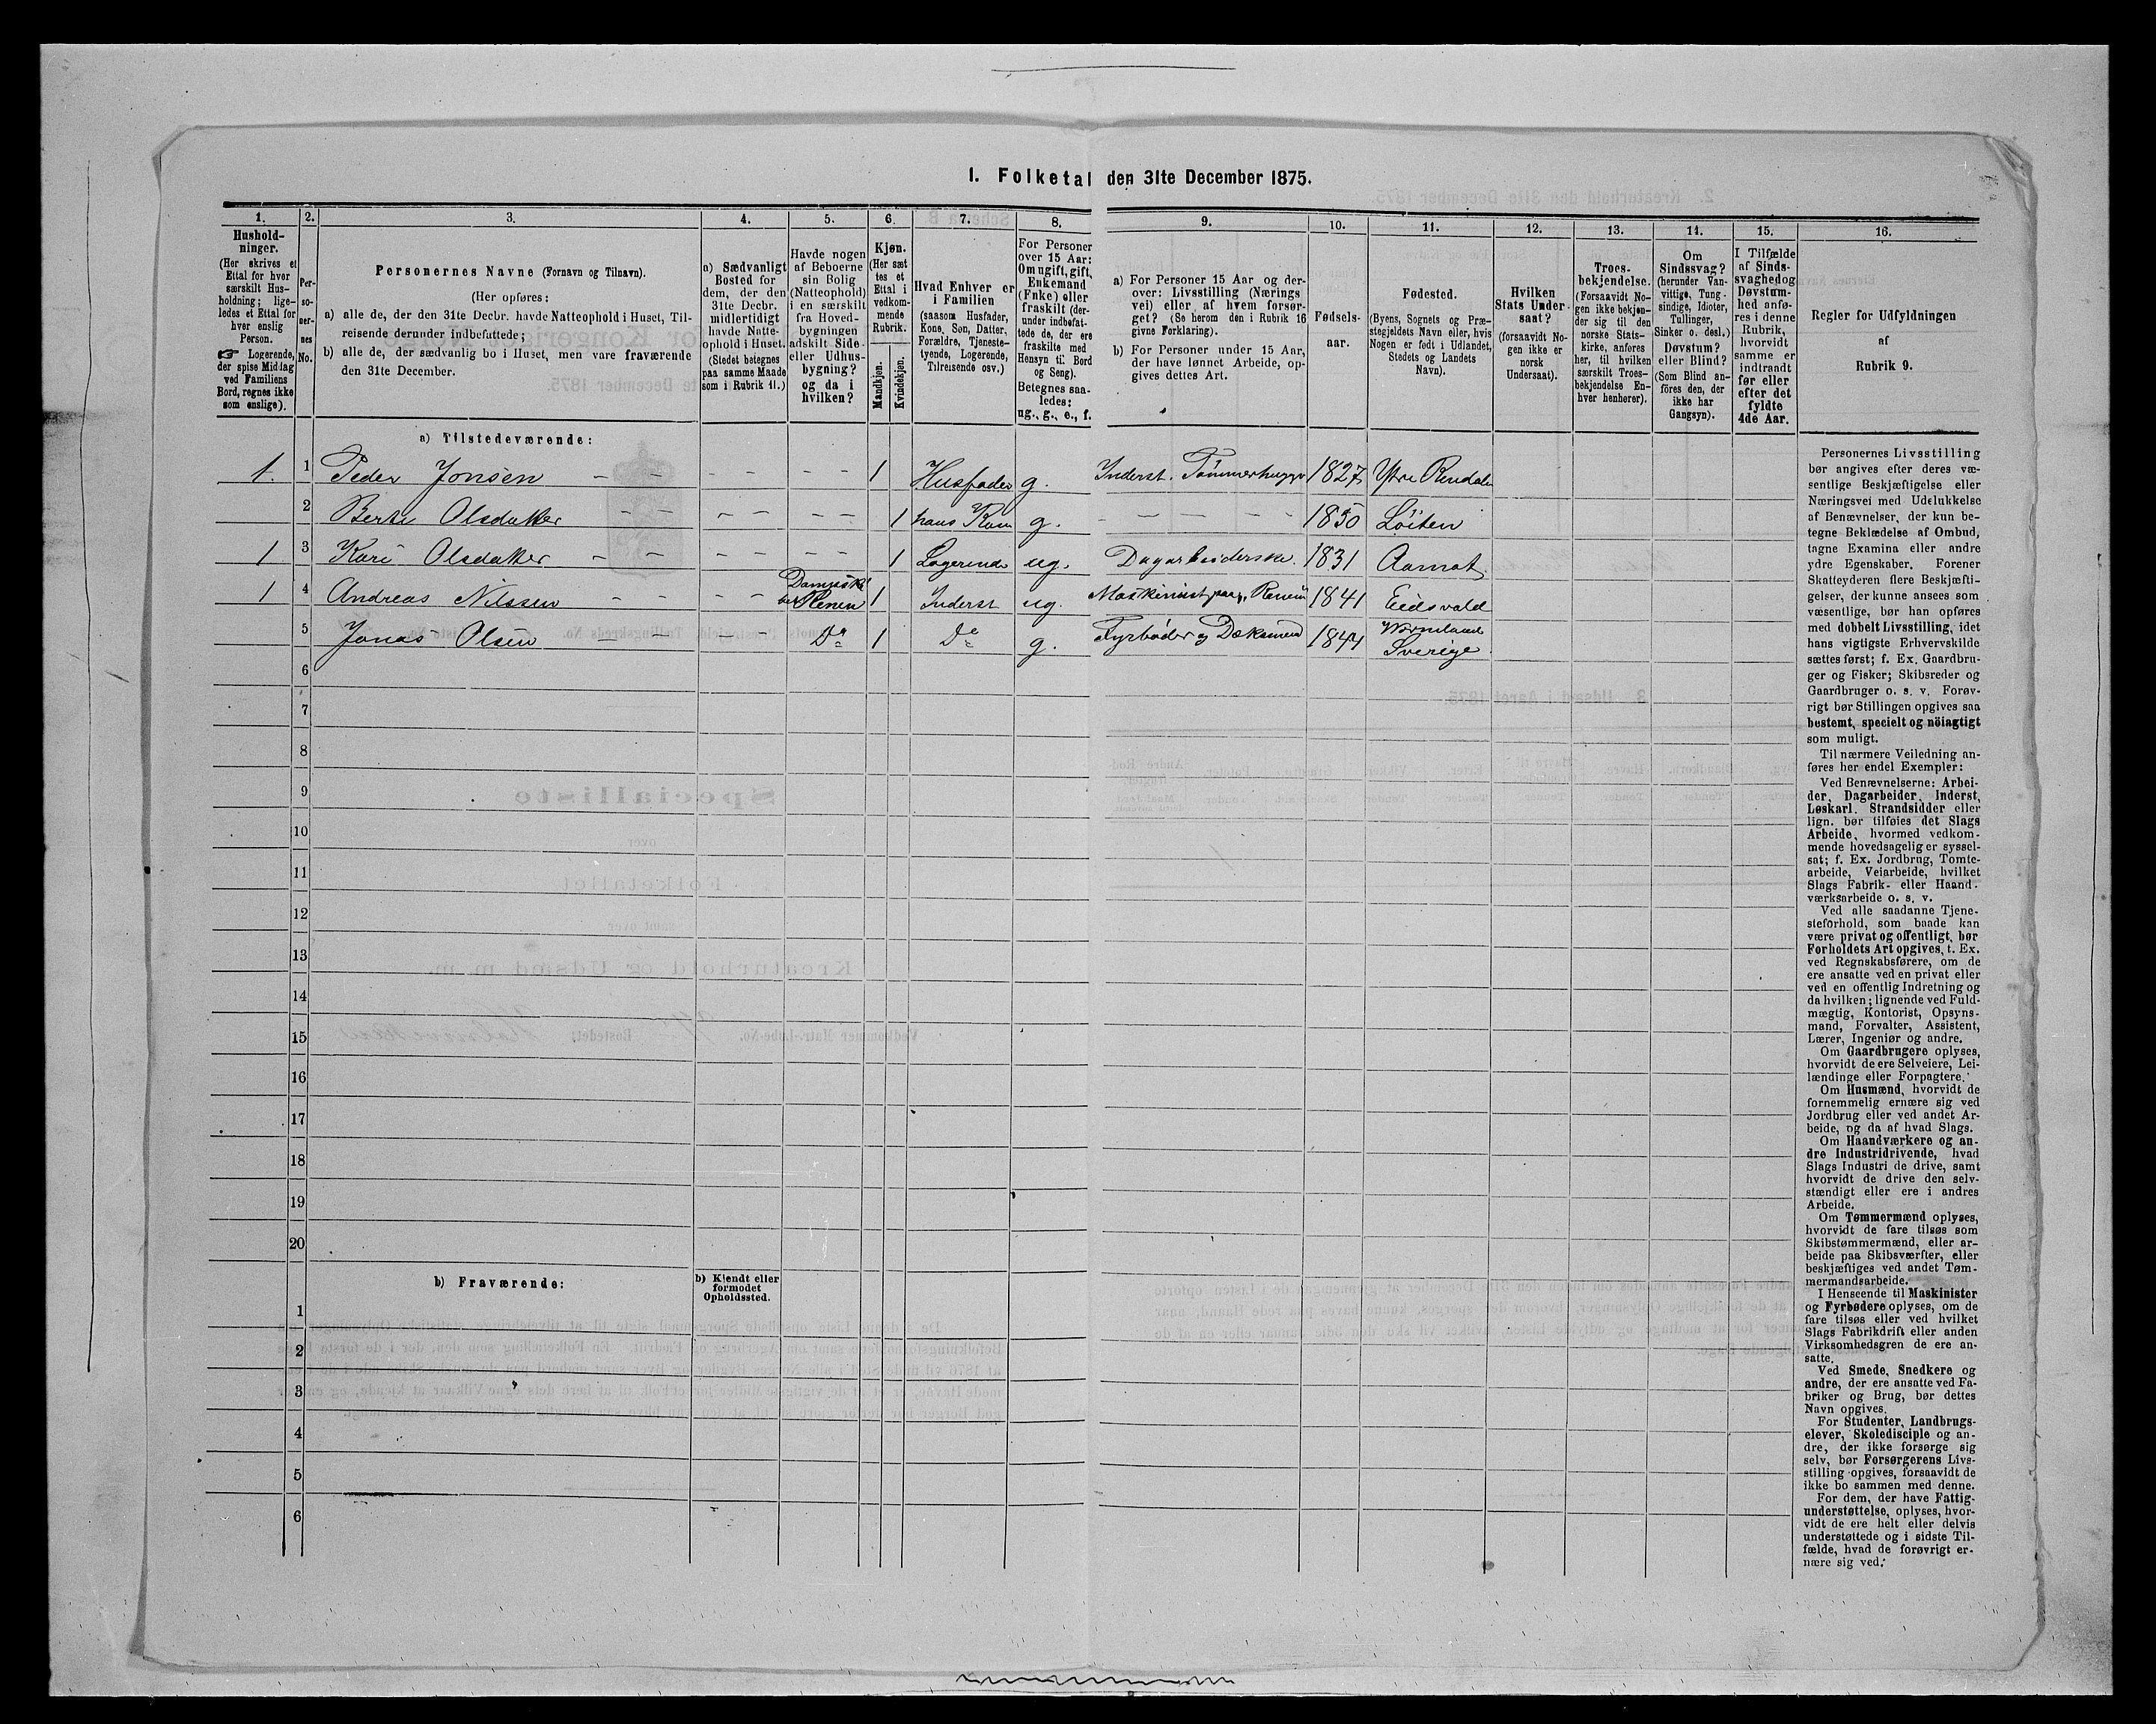 I. Folketal den 31te December 1875.
1. 2. 3. 4. 5. 6. 7. 8. 9. 10. 11. 12. 13. 14. 15. 16.
Hushold-
ninger.
(Her skrives et
Ettal for hver
særskilt Hus-
holdning; lige-
ledes et Ettal for
hver enslig
Person.
☞ Logerende,
der spise Middag
ved Familiens
Bord, regnes ikke
som enslige).
Per-
so-
ner-
nes
No.
Personernes Navne (Fornavn og Tilnavn).
(Her opføres:
a) alle de, der den 31te Decbr. havde Natteophold i Huset, Til-
reisende derunder indbefattede;
b) alle de, der sædvanlig bo i Huset, men vare fraværende
den 31te December.
a) Sædvanligt
Bosted for
dem, der den
31te Decbr.
midlertidigt
havde Natte-
ophold i Huset.
(Stedet betegnes
paa samme Maade
som i Rubrik 11.)
Havde nogen
af Beboerne
sin Bolig
(Natteophold)
i en særskilt
fra Hoved-
bygningen
adskilt Side-
eller Udhus-
bygning?
og da i
hvilken?
Kjøn.
(Her sæt-
tes et
Ettal i
vedkom-
mende
Rubrik.
Mandkjøn.
Kvindekjøn.
Hvad Enhver er
i Familien
(saasom Husfader,
Kone, Søn, Datter,
Forældre, Tjeneste-
tyende, Logerende,
Tilreisende osv.)
For Personer
over 15 Aar:
Om ugift, gift,
Enkemand
(Enke) eller
fraskilt (der-
under indbefat-
tede de, der ere
fraskilte med
Hensyn til Bord
og Seng).
Betegnes saa-
ledes:
ug., g., e., f.
a) For Personer 15 Aar og der-
over: Livsstilling (Nærings
vei) eller af hvem forsør-
get? (Se herom den i Rubrik 16
givne Forklaring).
b) For Personer under 15 Aar,
der have lønnet Arbeide, op-
gives dettes Art.
Fødsels-
aar.
Fødested.
(Byens, Sognets og Præ-
stegjeldets Navn eller, hvis
Nogen er født i Udlandet,
Stedets og Landets
Navn).
Hvilken
Stats Under-
saat?
(forsaavidt No-
gen ikke er
norsk
Undersaat).
Troes-
bekjendelse.
(Forsaavidt No-
gen ikke bekjen-
der sig til den
norske Stats-
kirke, anføres
her, til hvilken
særskilt Troes-
bekjendelse En-
hver henhører).
Om
Sindssvag?
(herunder Van-
vittige, Tung-
sindige, Idioter,
Tullinger,
Sinker o. desl.)
Døvstum?
eller Blind?
(Som Blind an-
føres den, der
ikke har
Gangsyn).
I Tilfælde
af Sinds-
svaghed og
Døvstum-
hed anfø-
res i denne
Rubrik,
hvorvidt
samme er
indtraadt
før eller
efter det
fyldte
4de Aar.
Regler for Udfyldningen
af
Rubrik 9.
a) Tilstedeværende:
1. 1 Peder Jonsen 1 Husfader g. Inderst. Tømmerhugger 1827 Ytre Rendalen
2 Berte Olsdatter 1 hans Kone g. 1850 Löiten
1 3 Kari Olsdatter 1 Logerende ug. Dagarbeiderske. 1831 Aamot.
1 4 Andreas Nilssen 1 Inderst ug. Maskinist paa 1841 Eidsvold
5 Jonas Olsen Do 1 Do g. Fyrbøder og Dæksmand 1844 Wermland
Sverige.
6
7
8
9
10
11
12
13
14
15
16
17
18
19
20
b) Fraværende:
b) Kjendt eller
formodet
Opholdssted.
1
2
3
4
5
6
Personernes Livsstilling
bør angives efter deres væ-
sentlige Beskjæftigelse eller
Næringsvei med Udelukkelse
af Benævnelser, der kun be-
tegne Beklædelse af Ombud,
tagne Examina eller andre
ydre Egenskaber. Forener
Skatteyderen flere Beskjæfti-
gelser, der kunne ansees som
væsentlige, bør han opføres
med dobbelt Livsstilling, idet
hans vigtigste Erhvervskilde
sættes først; f. Ex. Gaardbru-
ger og Fisker; Skibsreder og
Gaardbruger o. s. v. Forøv-
rigt bør Stillingen opgives saa
bestemt, specielt og nöiagtigt
som muligt.
Til nærmere Veiledning an-
føres her endel Exempler:
Ved Benævnelserne: Arbei-
der, Dagarbeider, Inderst,
Løskarl, Strandsidder eller
lign. bør tilføies det Slags
Arbeide, hvormed vedkom-
mende hovedsagelig er syssel-
sat; f. Ex. Jordbrug, Tomte-
arbeide, Veiarbeide, hvilket
Slags Fabrik- eller Haand-
værksarbeide o. s. v.
Ved alle saadanne Tjene-
steforhold, som baade kan
være privat og offentligt, bør
Forholdets Art opgives, t. Ex.
ved Regnskabsførere, om de
ere ansatte ved en privat eller
ved en offentlig Indretning og
da hvilken; lignende ved Fuld-
mægtig, Kontorist, Opsyns-
mand, Forvalter, Assistent,
Lærer, Ingeniør og andre.
Om Gaardbrugere oplyses,
hvorvidt de ere Selveiere, Lei-
lændinge eller Forpagtere.
Om Husmænd, hvorvidt de
fornemmelig ernære sig ved
Jordbrug eller ved andet Ar-
beide, og da af hvad Slags.
Om Haandværkere og an-
dre Industridrivende, hvad
Slags Industri de drive, samt
hvorvidt de drive den selv-
stændigt eller ere i andres
Arbeide.
Om Tømmermænd oplyses,
hvorvidt de fare tilsøs som
Skibstømmermænd, eller ar-
beide paa Skibsværfter, eller
beskjæftiges ved andet Tøm-
mermandsarbeide.
I Henseende til Maskinister
og Fyrbødere oplyses, om de
fare tilsøs eller ved hvilket
Slags Fabrikdrift eller anden
Virksomhedsgren de ere an-
satte.
Ved Smede, Snedkere og
andre, der ere ansatte ved Fa-
briker og Brug, bør dettes
Navn opgives.
For Studenter, Landbrugs-
elever, Skoledisciple og an-
dre, der ikke forsørge sig
selv, bør Forsørgerens Livs-
stilling opgives, forsaavidt de
ikke bo sammen med denne.
For dem, der have Fattig-
understøttelse, oplyses, hvor-
vidt de ere helt eller delvis
understøttede og i sidste Til-
fælde, hvad de forøvrigt er-
nære sig ved.